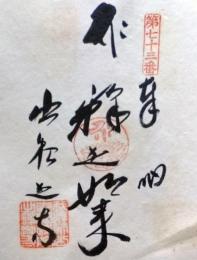 第七十三番
奉納
釋迦如来
出釈迦寺